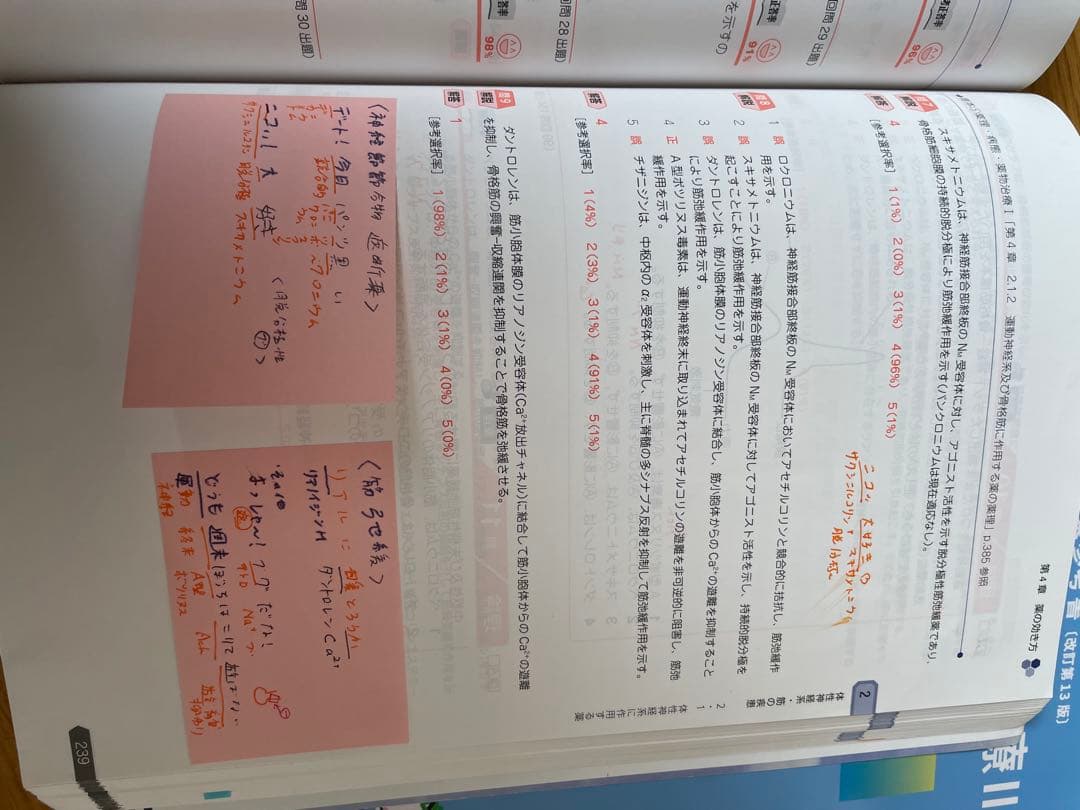 第4章 薬の効き方
薬理・病態・薬物治療Ⅰ「第4章 2.1.2 運動神経系及び骨格筋に作用する薬の薬理」p.385 参照
問7
解説
スキサメトニウムは、神経筋接合部終板の NM 受容体に対し、アゴニスト活性を示す脱分極性筋弛緩薬であり、
骨格筋細胞膜の持続的脱分極により筋弛緩作用を示す(パンクロニウムは現在適応なし)。
解答 4
[参考選択率] 1(1%) 2(0%) 3(1%) 4(96%) 5(1%)
ニコッ 大好き
サクシニルコリン = スキサメトニウム
脱分極
問8
解説
1 誤 ロクロニウムは、神経筋接合部終板の NM 受容体においてアセチルコリンと競合的に拮抗し、筋弛緩作
用を示す。
2 誤 スキサメトニウムは、神経筋接合部終板の NM 受容体に対してアゴニスト活性を示し、持続的脱分極を
起こすことにより筋弛緩作用を示す。
3 誤 ダントロレンは、筋小胞体のリアノジン受容体に結合し、筋小胞体からの Ca²⁺ の遊離を抑制すること
により筋弛緩作用を示す。
4 正 A 型ボツリヌス毒素は、運動神経終末に取り込まれてアセチルコリンの遊離を非可逆的に阻害し、筋弛
緩作用を示す。
5 誤 チザニジンは、中枢内の α₂ 受容体を刺激し、主に脊髄の多シナプス反射を抑制して筋弛緩作用を示す。
解答 4
[参考選択率] 1(4%) 2(3%) 3(1%) 4(91%) 5(1%)
問9
解説
ダントロレンは、筋小胞体膜のリアノジン受容体(Ca²⁺ 放出チャネル)に結合して筋小胞体からの Ca²⁺ の遊離
を抑制し、骨格筋の興奮−収縮連関を抑制することで骨格筋を弛緩させる。
解答 1
[参考選択率] 1(98%) 2(1%) 3(1%) 4(0%) 5(0%)
デート! 今日 パンツ 黒い
競合的 パンクロニウム
ニコッ 大 好き
サクシニルコリン 脱分極 スキサメトニウム
〈脱分極性
〈筋弛緩〉
リアルに
リアノジンM ダントロレン Ca²⁺
その1
だな!
Na⁺
どうも 週末
運動 終末 A型 Ach
神経 ボツリヌス
2
体性神経系・筋の疾患
2.1 体性神経系に作用する薬
239
回問 28 出題)
回問 29 出題)
回問 30 出題)
正答率
96%
91%
98%
を示すの
参考書
〔改訂第 13 版〕
療Ⅲ